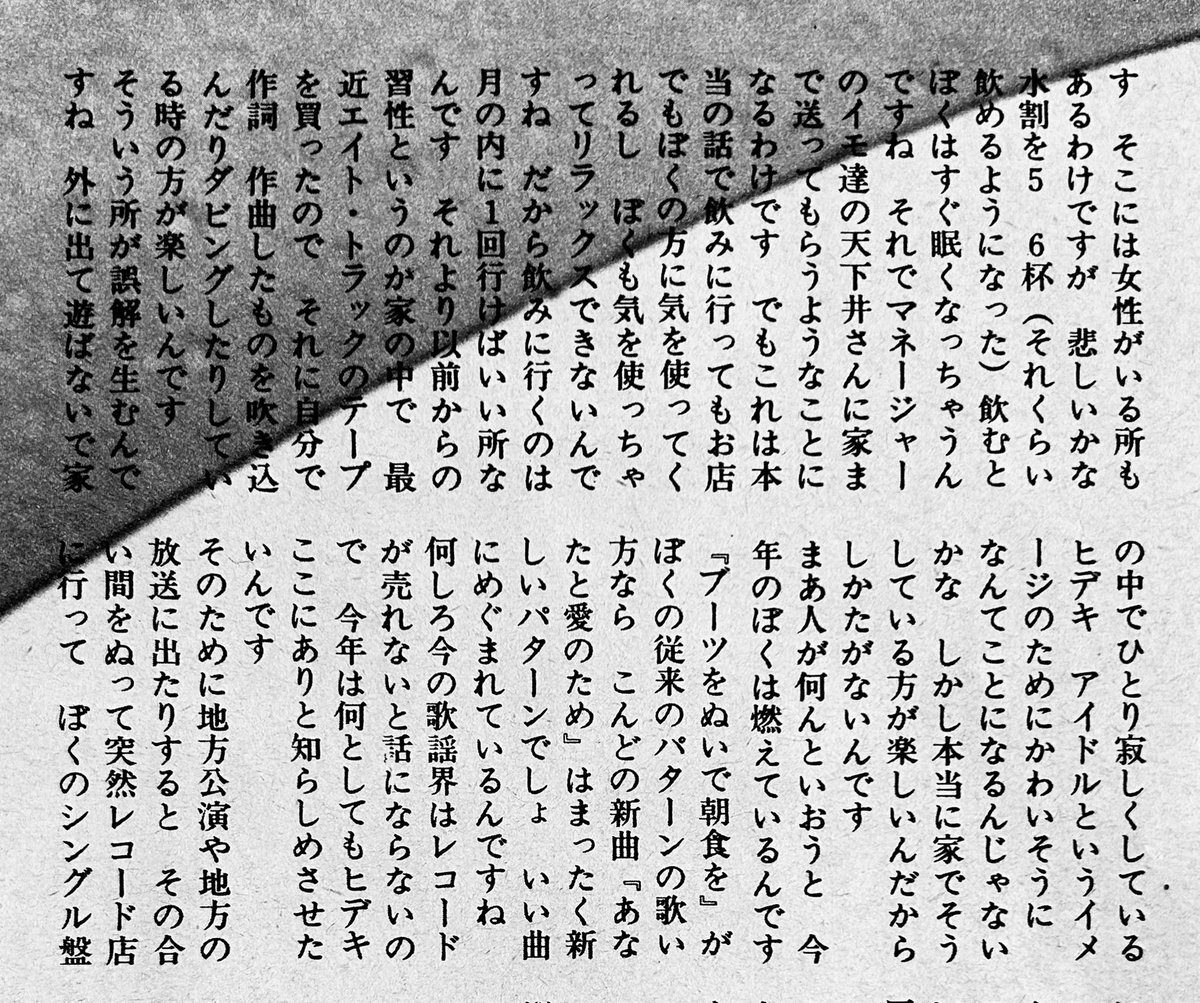 す　そこには女性がいる所も
あるわけですが　悲しいかな
水割を5　6杯（それくらい
飲めるようになった）飲むと
ぼくはすぐ眠くなっちゃうん
ですね　それでマネージャー
のイモ達の天下井さんに家ま
で送ってもらうようなことに
なるわけです　でもこれは本
当の話で飲みに行ってもお店
でもぼくの方に気を使ってく
れるし　ぼくも気を使っちゃ
ってリラックスできないんで
すね　だから飲みに行くのは
月の内に1回行けばいい所な
んです　それより以前からの
習性というのが家の中で　最
近エイト・トラックのテープ
を買ったので　それに自分で
作詞　作曲したものを吹き込
んだりダビングしたりしてい
る時の方が楽しいんです
そういう所が誤解を生むんで
すね　外に出て遊ばないで家
の中でひとり寂しくしている
ヒデキ　アイドルというイメ
ージのためにかわいそうに
なんてことになるんじゃない
かな　しかし本当に家でそう
している方が楽しいんだから
しかたがないんです
まあ人が何んといおうと　今
年のぼくは燃えているんです
『ブーツをぬいで朝食を』が
ぼくの従来のパターンの歌い
方なら　こんどの新曲『あな
たと愛のため』はまったく新
しいパターンでしょ　いい曲
にめぐまれているんですね
何しろ今の歌謡界はレコード
が売れないと話にならないの
で　今年は何としてもヒデキ
ここにありと知らしめさせた
いんです
そのために地方公演や地方の
放送に出たりすると　その合
い間をぬって突然レコード店
に行って　ぼくのシングル盤